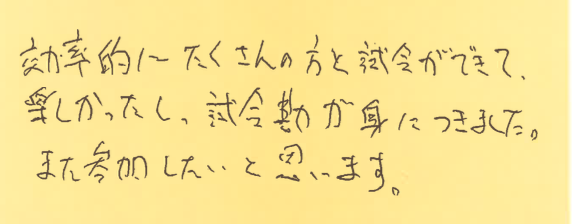 効率的にたくさんの方と試合ができて、
楽しかったし、試合勘が身につきました。
また参加したいと思います。